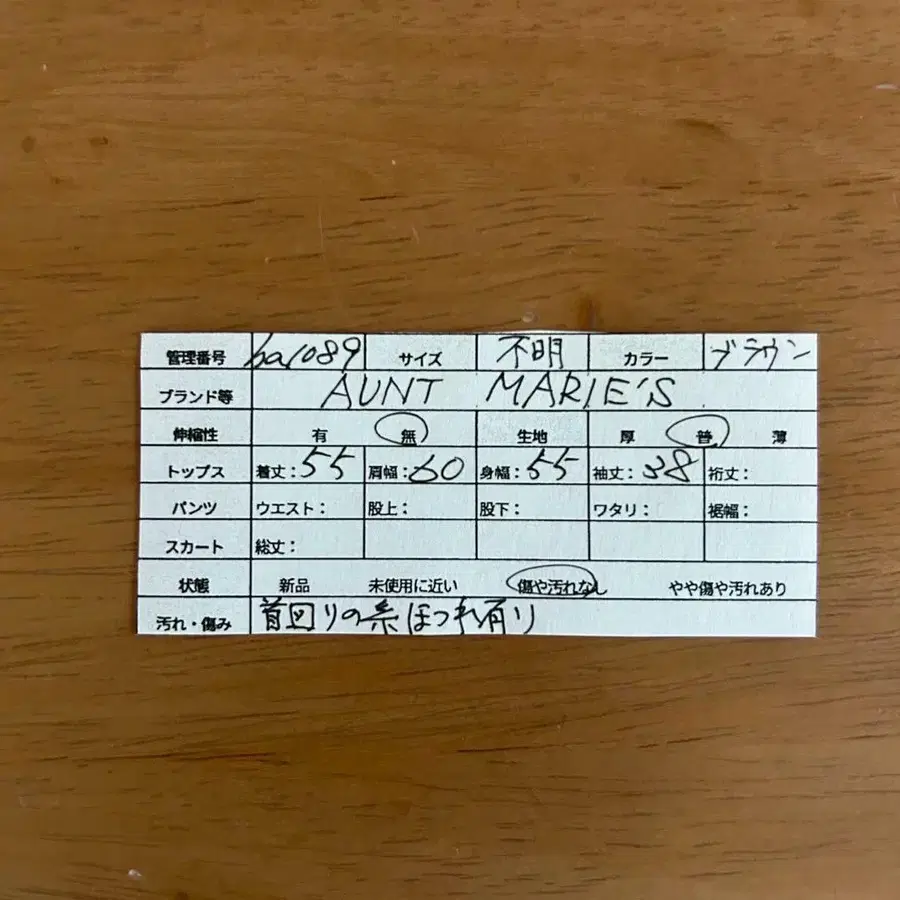 管理番号 ha1089 サイズ 不明 カラー ブラウン
ブランド等 AUNT MARIE'S
伸縮性 有 無 生地 厚 普 薄
トップス 着丈：55 肩幅：60 身幅：55 袖丈：38 裄丈：
パンツ ウエスト： 股上： 股下： ワタリ： 裾幅：
スカート 総丈：
状態 新品 未使用に近い 傷や汚れなし やや傷や汚れあり
汚れ・傷み 首回りの糸ほつれ有り